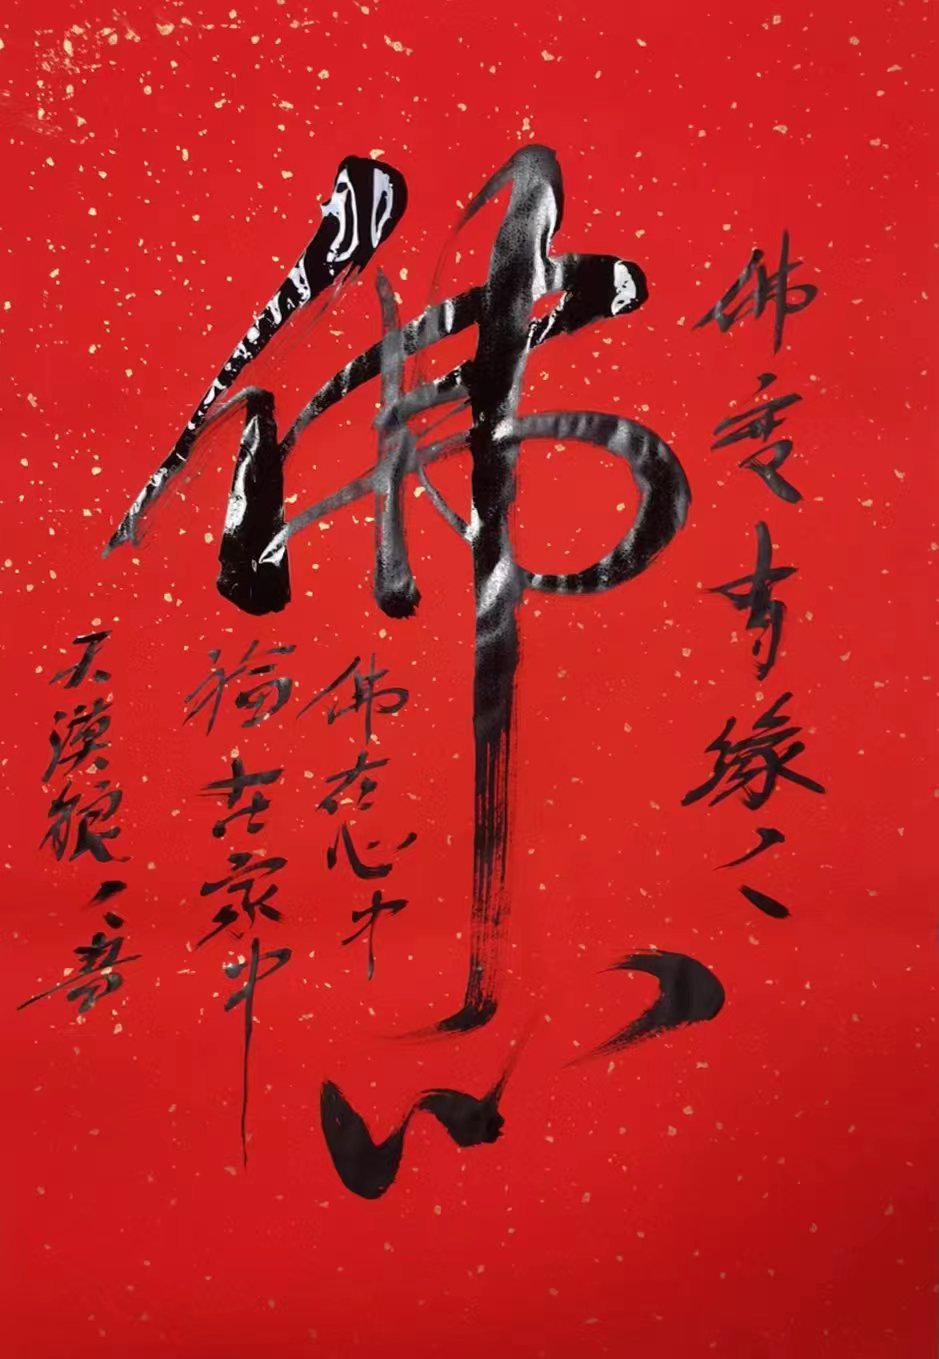 佛有缘人
佛心
佛在心中
福在家中
漠狼人书